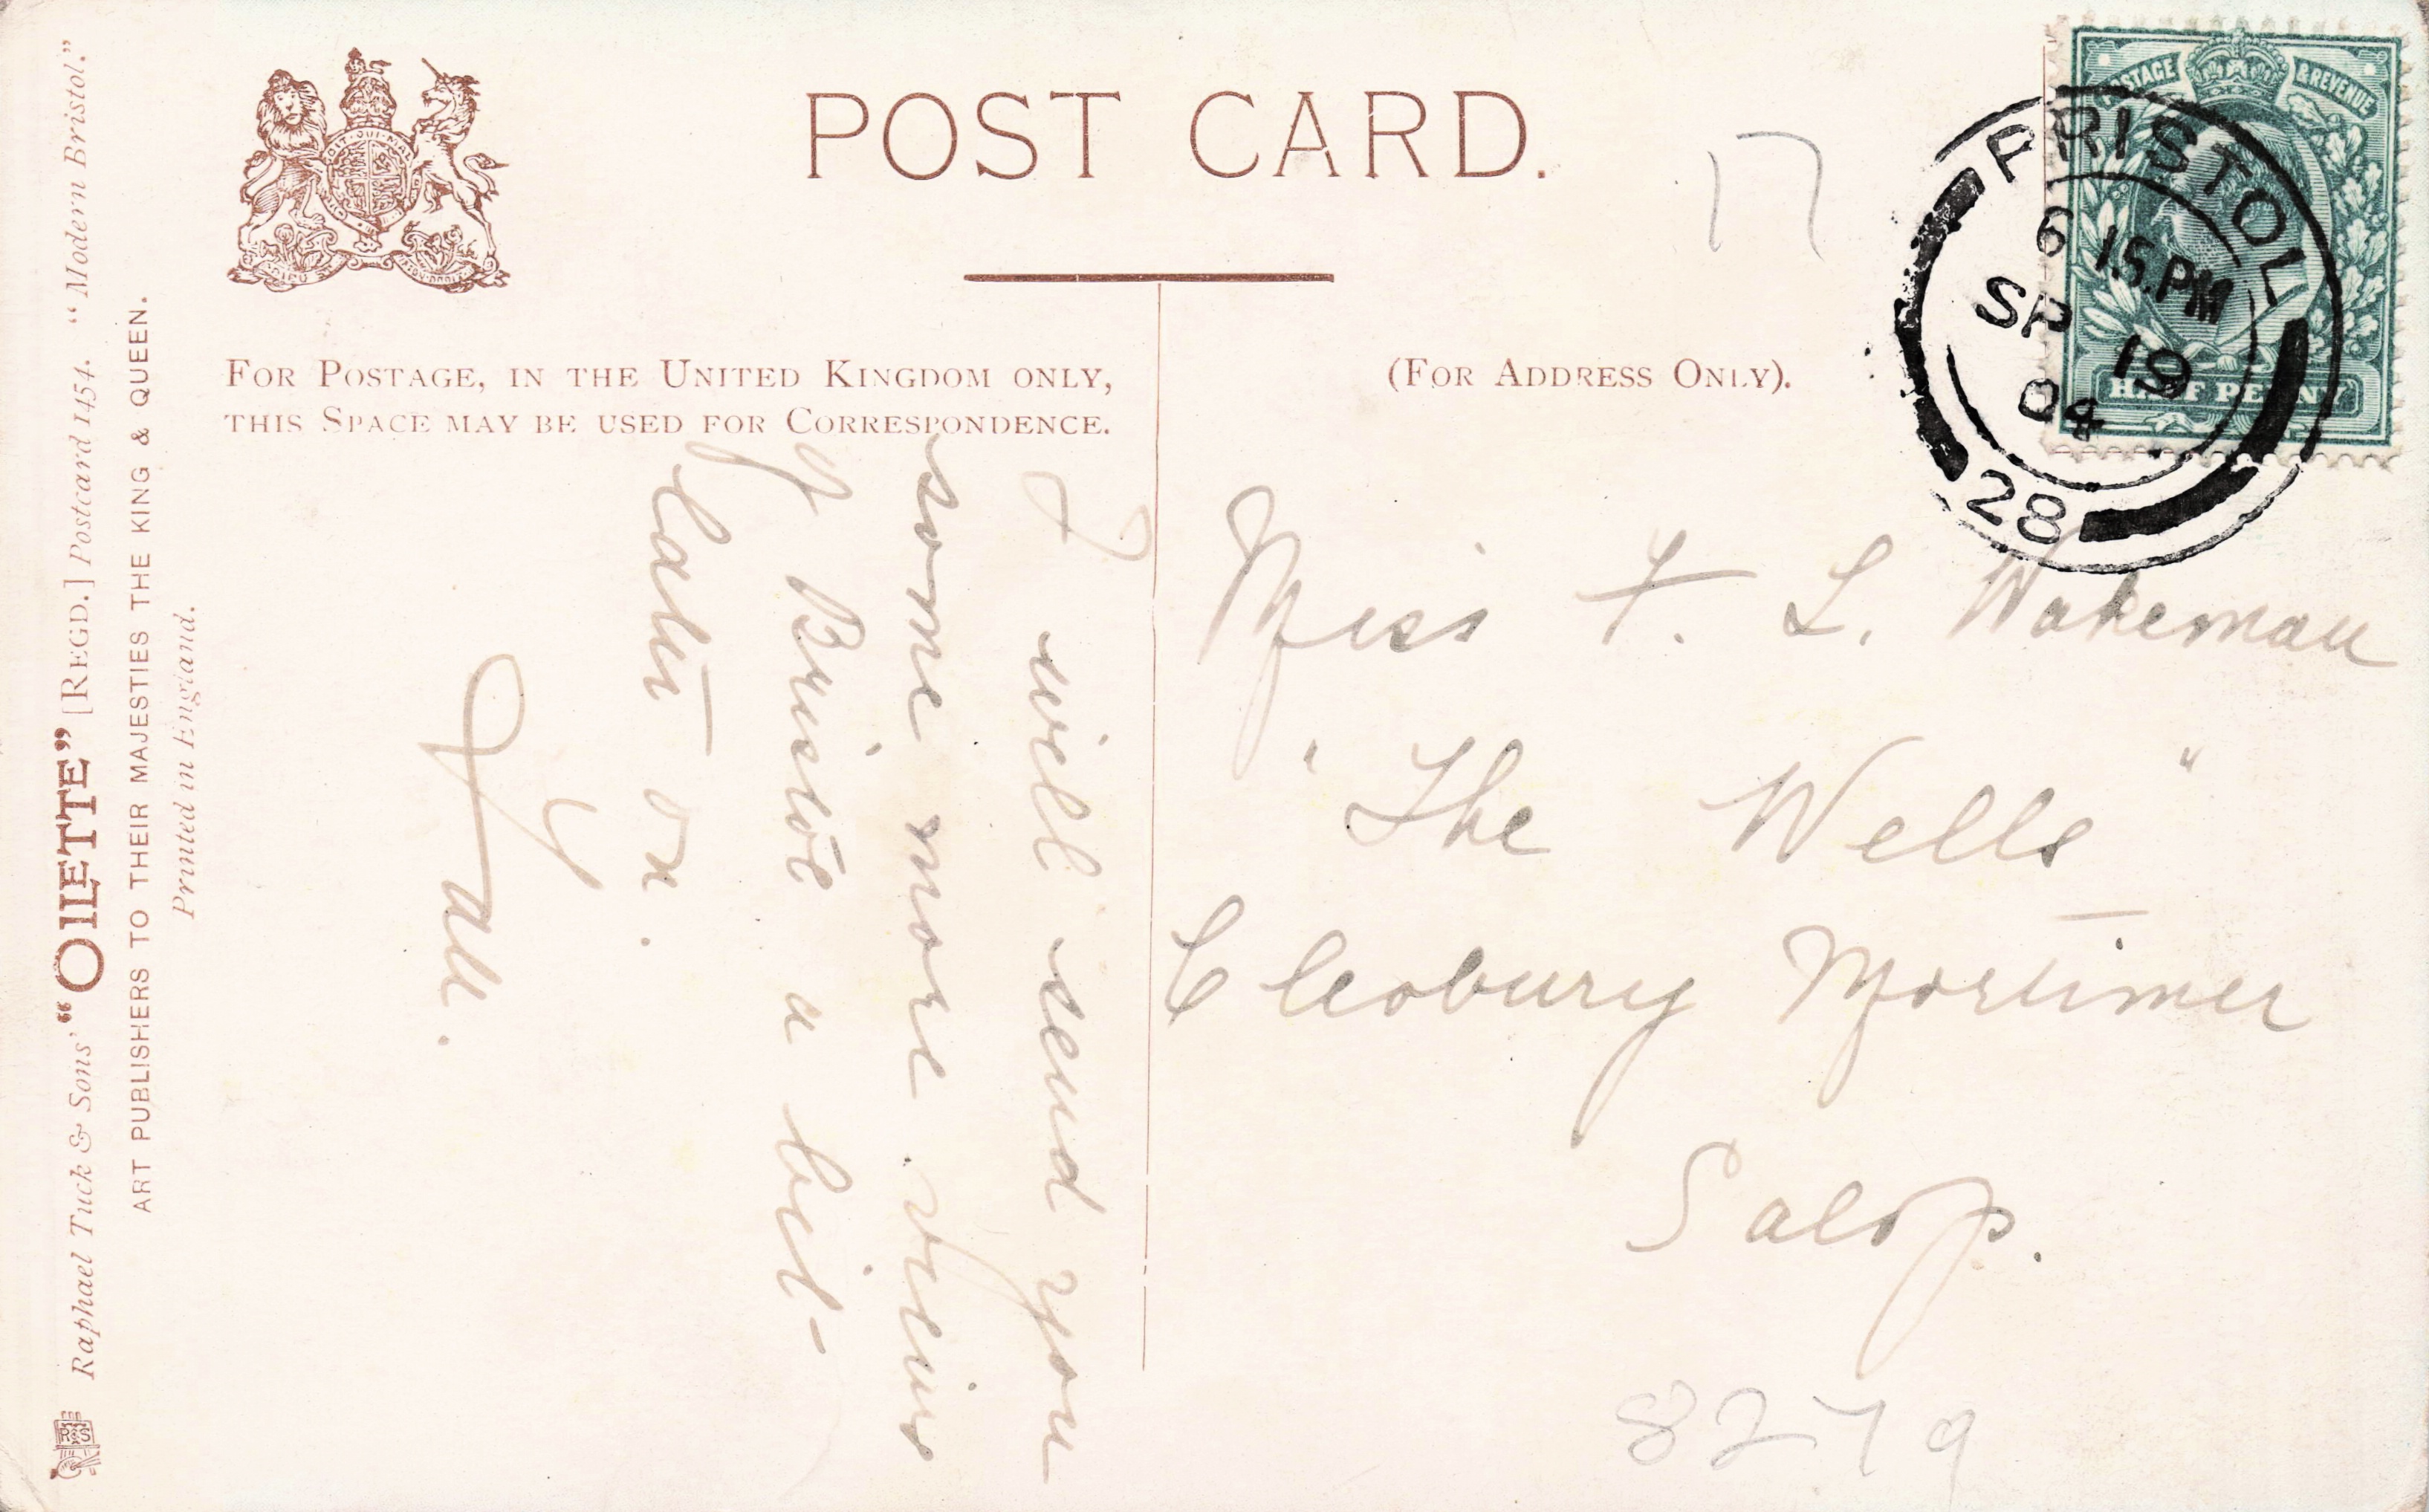 POST CARD.
FOR POSTAGE, IN THE UNITED KINGDOM ONLY,
THIS SPACE MAY BE USED FOR CORRESPONDENCE.
(FOR ADDRESS ONLY).
17
POSTAGE & REVENUE
HALF PENNY
BRISTOL
6 15.PM
SP 19
04
28
I will send you
some more views
of Bristol a bit
later on.
Miss F. L. Wakeman
"The Wells"
Cleobury Mortimer
Salop.
8279
Raphael Tuck & Sons' "OILETTE" [REGD.] Postcard 1454. "Modern Bristol."
ART PUBLISHERS TO THEIR MAJESTIES THE KING & QUEEN.
Printed in England.